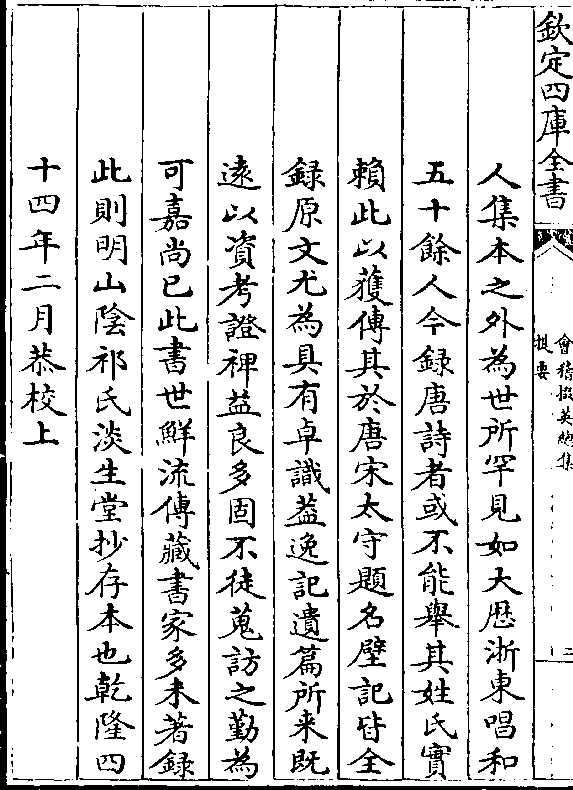 欽定四庫全書
會稽掇英總集
提要
二
人集本之外為世所罕見如大厯浙東唱和
五十餘人今録唐詩者或不能舉其姓氏實
賴此以獲傳其於唐宋太守題名壁記皆全
録原文尤為具有卓識葢逸記遺篇所来既
遠以資考證裨益良多固不徒蒐訪之勤為
可嘉尚已此書世鮮流傳藏書家多未著録
此則明山陰祁氏淡生堂抄存本也乾隆四
十四年二月恭校上